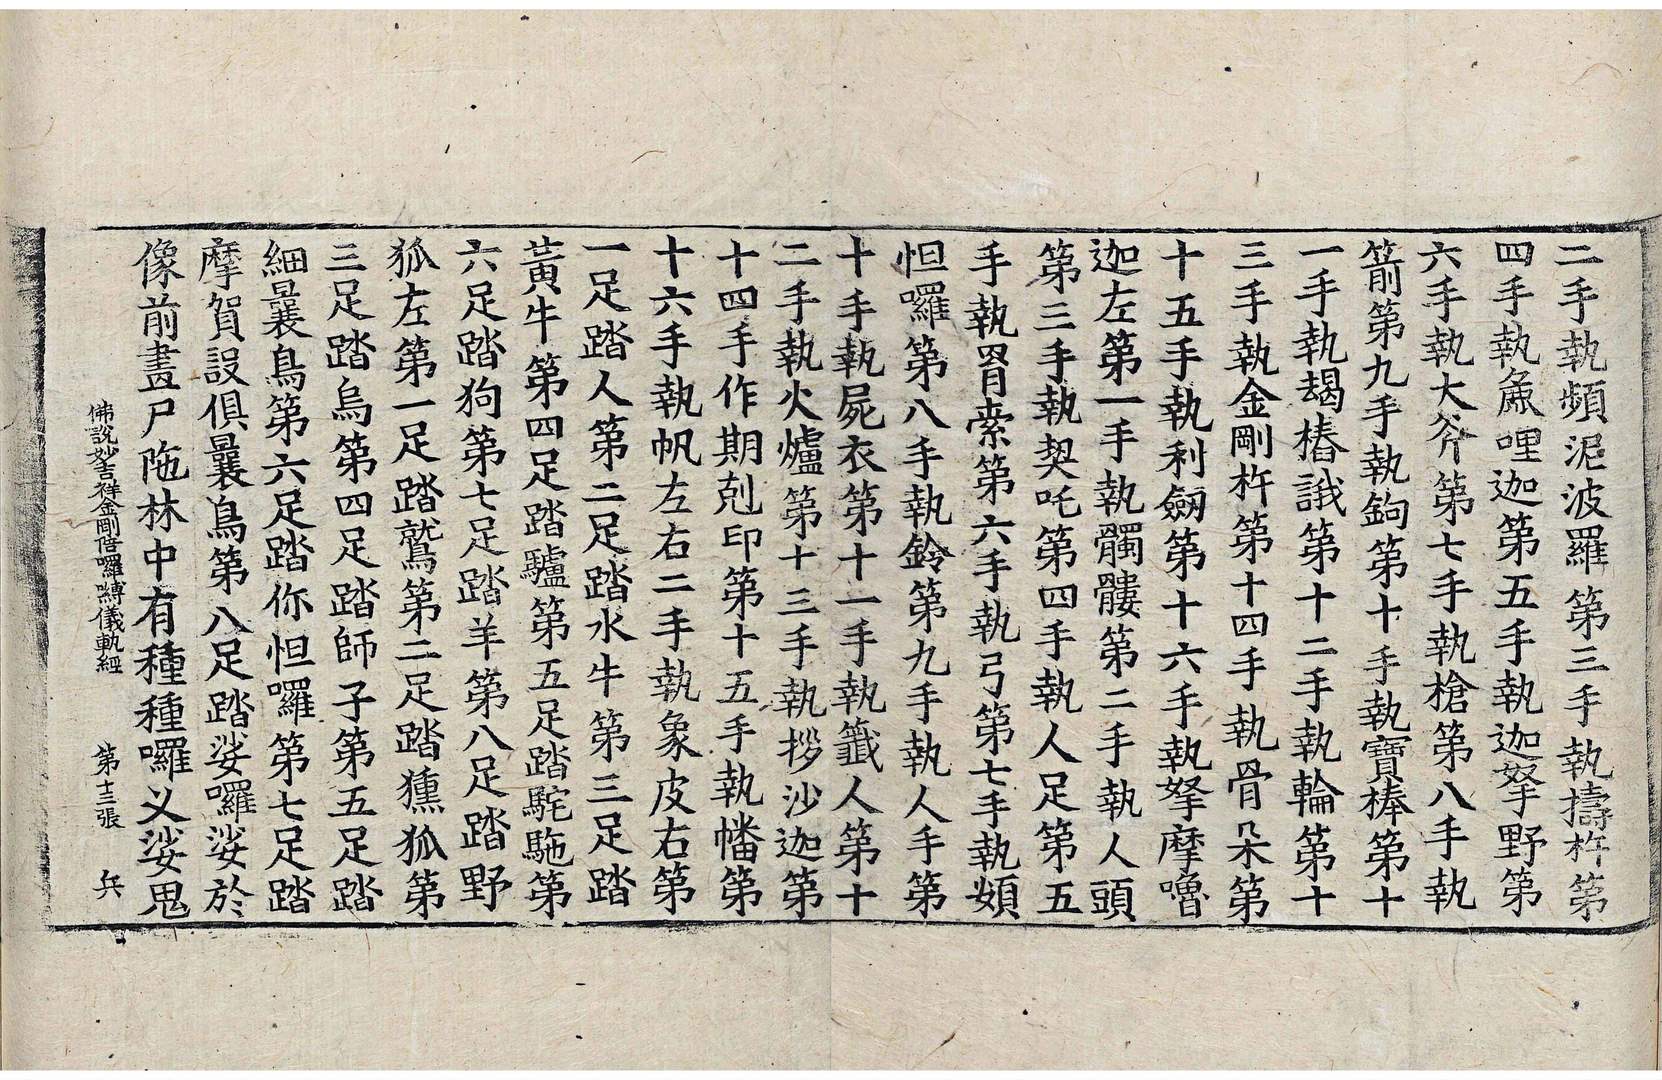 二手執頻泥波羅第三手執擣杵第
四手執麁哩迦第五手執迦拏野第
六手執大斧第七手執槍第八手執
箭第九手執鉤第十手執寶棒第十
一手執朅樁誐第十二手執輪第十
三手執金剛杵第十四手執骨朵第
十五手執利劒第十六手執拏摩嚕
迦左第一手執髑髏第二手執人頭
第三手執契吒第四手執人足第五
手執罥索第六手執弓第七手執頻
怛囉第八手執鈴第九手執人手第
十手執屍衣第十一手執籤人第十
二手執火爐第十三手執拶沙迦第
十四手作期剋印第十五手執幡第
十六手執帆左右二手執象皮右第
一足踏人第二足踏水牛第三足踏
黃牛第四足踏驢第五足踏駝駞第
六足踏狗第七足踏羊第八足踏野
狐左第一足踏鷲第二足踏獯狐第
三足踏烏第四足踏師子第五足踏
細曩鳥第六足踏你怛囉第七足踏
摩賀設俱曩鳥第八足踏娑囉娑於
像前畫尸陁林中有種種囉义娑鬼
佛說妙吉祥金剛倍囉嚩儀軌經 第十三張 兵